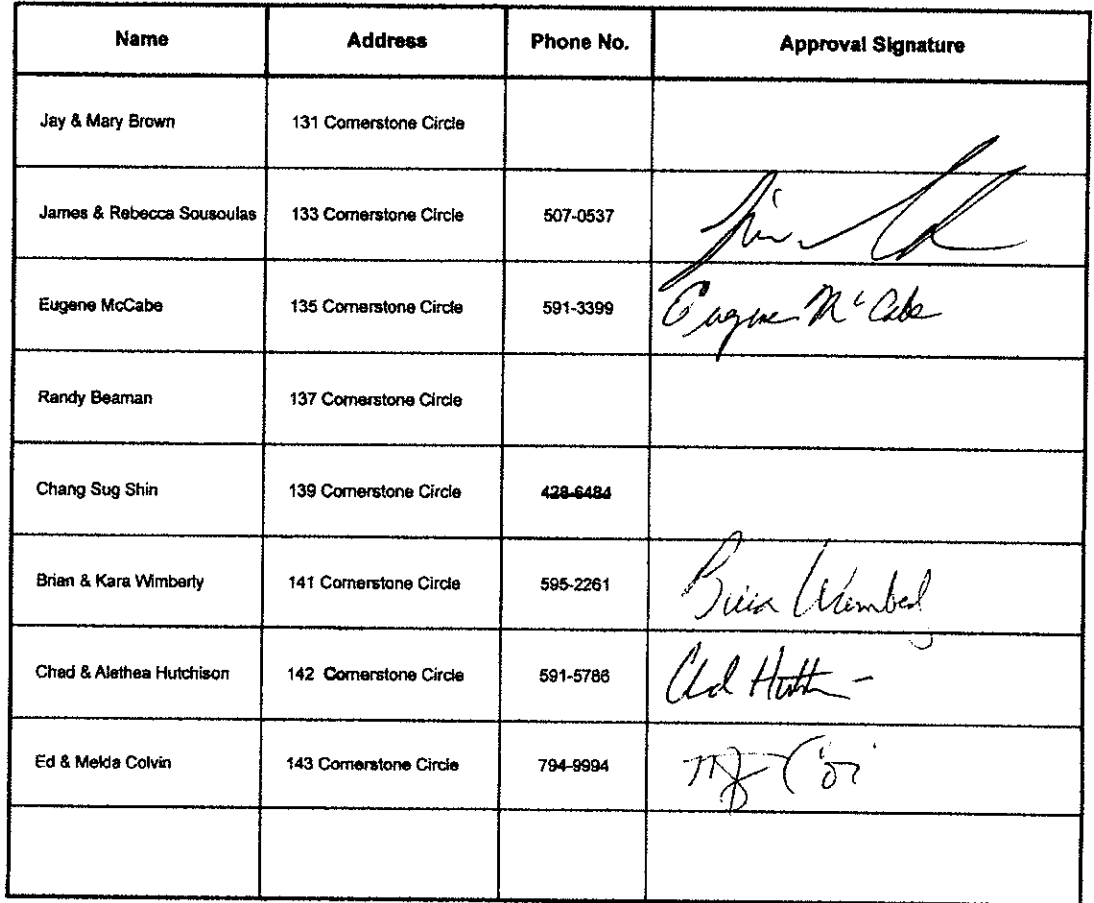 Name Address Phone No. Approval Signature
Jay & Mary Brown 131 Cornerstone Circle
James & Rebecca Sousoulas 133 Cornerstone Circle 507-0537
Eugene McCabe 135 Cornerstone Circle 591-3399 Eugene McCabe
Randy Beaman 137 Cornerstone Circle
Chang Sug Shin 139 Cornerstone Circle 428-6484
Brian & Kara Wimberly 141 Cornerstone Circle 595-2261
Chad & Alethea Hutchison 142 Cornerstone Circle 591-5786
Ed & Melda Colvin 143 Cornerstone Circle 794-9994